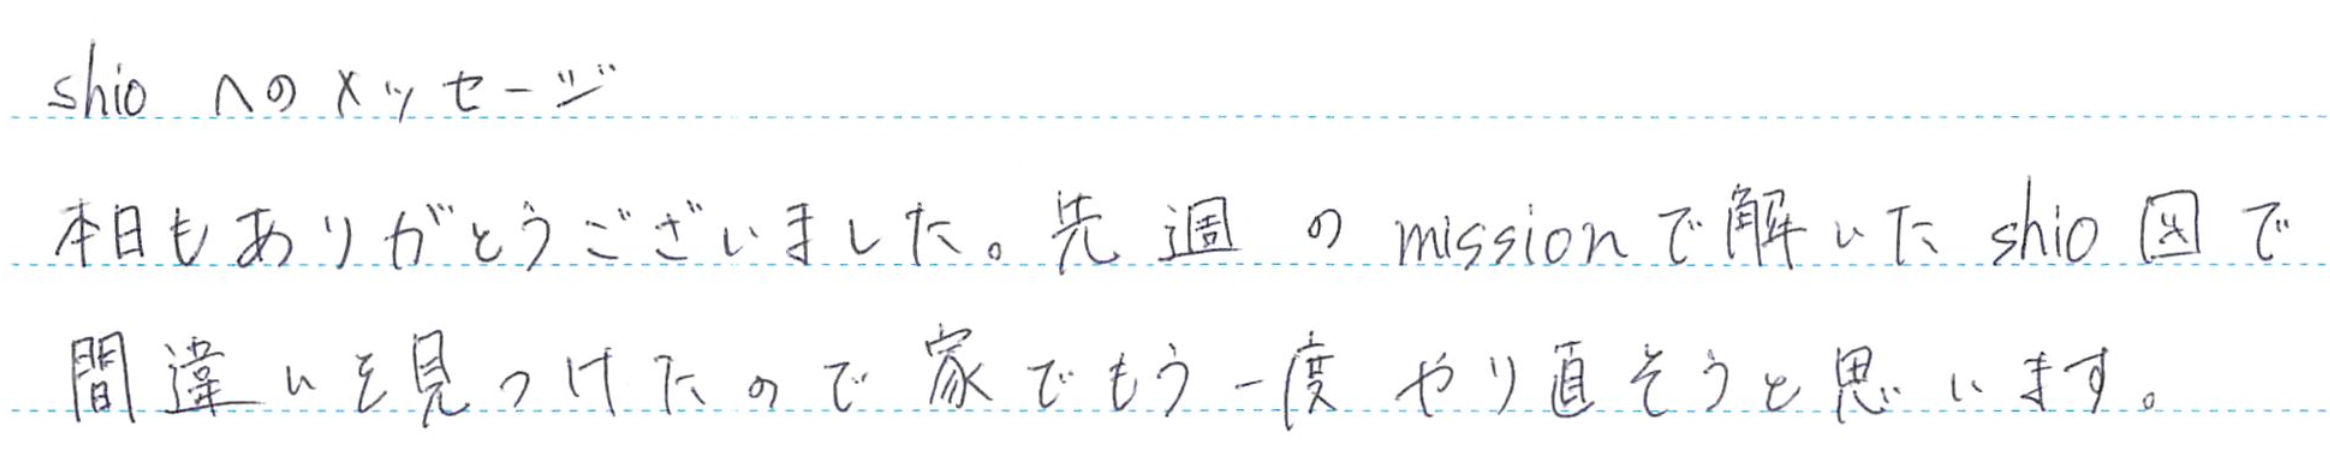 shio へのメッセージ
本日もありがとうございました。先週のmissionで解いたshio図で
間違いを見つけたので家でもう一度やり直そうと思います。